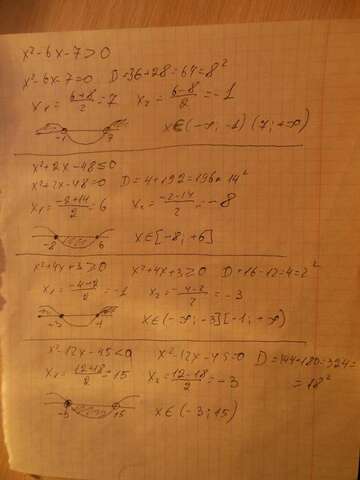 x²-6x-7>0
x²-6x-7=0 D=36+28=64=8²
x₁=(6+8)/2=7 x₂=(6-8)/2=-1
-1 7 x∈(-∞;-1)(7;+∞)
x²+2x-48≤0
x²+2x-48=0 D=4+192=196=14²
x₁=(-2+14)/2=6 x₂=(-2-14)/2=-8
-8 6 x∈[-8;+6]
x²+4x+3≥0 x²+4x+3≥0 D=16-12=4=2²
x₁=(-4+2)/2=-1 x₂=(-4-2)/2=-3
-3 -1 x∈(-∞;-3][-1;+∞)
x²-12x-45<0 x²-12x-45=0 D=144+180=324=
x₁=(12+18)/2=15 x₂=(12-18)/2=-3 =18²
-3 15 x∈(-3;15)